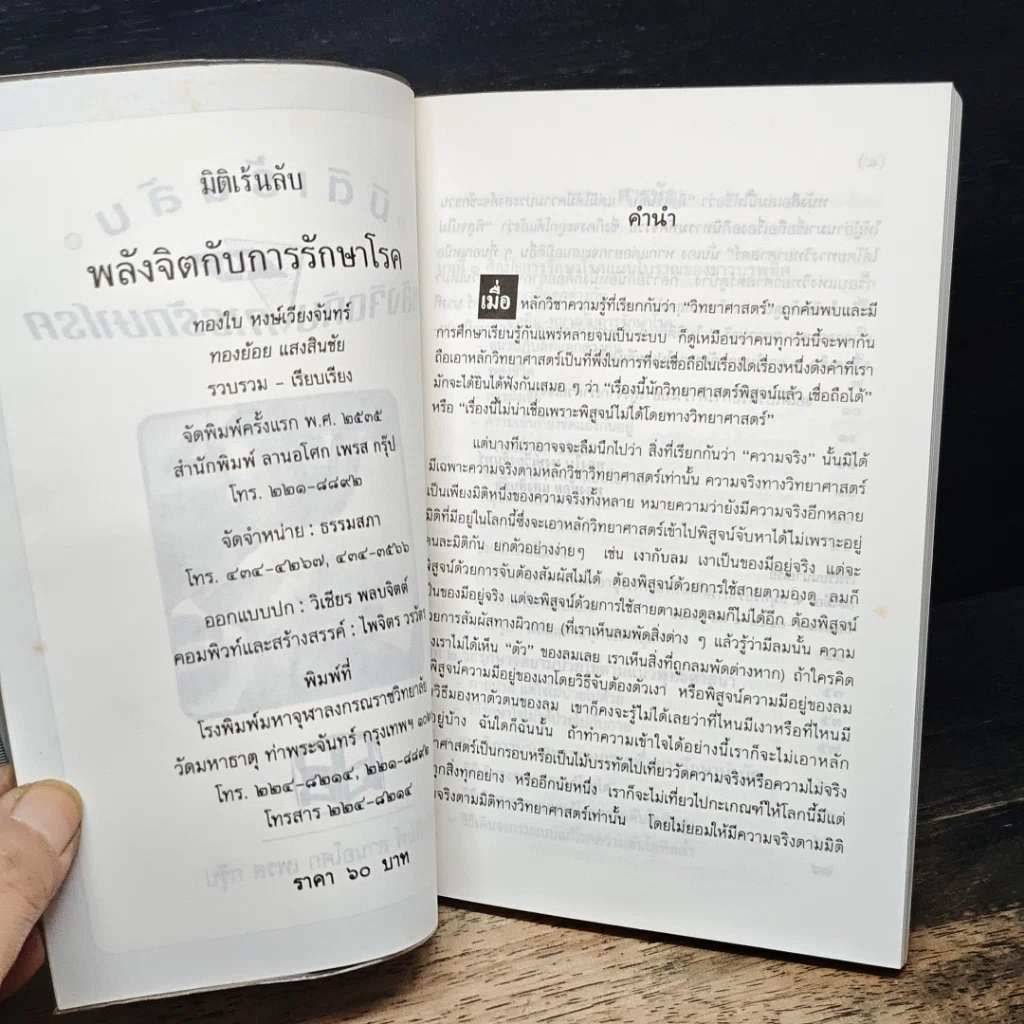 มิติเร้นลับ
พลังจิตกับการรักษาโรค
ทองใบ หงษ์เวียงจันทร์
ทองย้อย แสงสินชัย
รวบรวม – เรียบเรียง
จัดพิมพ์ครั้งแรก พ.ศ. ๒๕๓๕
สำนักพิมพ์ ลานอโศก เพรส กรุ๊ป
โทร. ๒๒๑-๘๘๙๒
จัดจำหน่าย : ธรรมสภา
โทร. ๔๓๔-๔๒๖๗, ๔๓๔-๓๕๖๖
ออกแบบปก : วิเชียร พลบจิตต์
คอมพิวท์และสร้างสรรค์ : ไพจิตร
พิมพ์ที่
โรงพิมพ์มหาจุฬาลงกรณราชวิทยาลัย
วัดมหาธาตุ ท่าพระจันทร์ กรุงเทพฯ
โทร. ๒๒๔-๘๒๑๔, ๒๒๑-๘๘๙๒
โทรสาร ๒๒๔-๘๒๑๔
ราคา ๖๐ บาท
คำนำ
เมื่อ หลักวิชาความรู้ที่เรียกกันว่า “วิทยาศาสตร์” ถูกค้นพบและมี
การศึกษาเรียนรู้กันแพร่หลายจนเป็นระบบ ก็ดูเหมือนว่าคนทุกวันนี้จะพากัน
ถือเอาหลักวิทยาศาสตร์เป็นที่พึ่งในการที่จะเชื่อถือในเรื่องใดเรื่องหนึ่งดังคำที่เรา
มักจะได้ยินได้ฟังกันเสมอ ๆ ว่า “เรื่องนี้นักวิทยาศาสตร์พิสูจน์แล้ว เชื่อถือได้”
หรือ “เรื่องนี้ไม่น่าเชื่อเพราะพิสูจน์ไม่ได้โดยทางวิทยาศาสตร์”
แต่บางทีเราอาจจะลืมนึกไปว่า สิ่งที่เรียกกันว่า “ความจริง” นั้นมิได้
มีเฉพาะความจริงตามหลักวิชาวิทยาศาสตร์เท่านั้น ความจริงทางวิทยาศาสตร์
เป็นเพียงมิติหนึ่งของความจริงทั้งหลาย หมายความว่ายังมีความจริงอีกหลาย
มิติที่มีอยู่ในโลกนี้ซึ่งจะเอาหลักวิทยาศาสตร์เข้าไปพิสูจน์จับหาได้ไม่เพราะอยู่
คนละมิติกัน ยกตัวอย่างง่ายๆ เช่น เงากับลม เงาเป็นของมีอยู่จริง แต่จะ
พิสูจน์ด้วยการจับต้องสัมผัสไม่ได้ ต้องพิสูจน์ด้วยการใช้สายตามองดู ลมก็
เป็นของมีอยู่จริง แต่จะพิสูจน์ด้วยการใช้สายตามองดูลมก็ไม่ได้อีก ต้องพิสูจน์
ด้วยการสัมผัสทางผิวกาย (ที่เราเห็นลมพัดสิ่งต่าง ๆ แล้วรู้ว่ามีลมนั้น ความ
เราไม่ได้เห็น “ตัว” ของลมเลย เราเห็นสิ่งที่ถูกลมพัดต่างหาก) ถ้าใครคิด
พิสูจน์ความมีอยู่ของเงาโดยวิธีจับต้องตัวเงา หรือพิสูจน์ความมีอยู่ของลม
วิธีมองหาตัวตนของลม เขาก็คงจะรู้ไม่ได้เลยว่าที่ไหนมีเงาหรือที่ไหนมี
อยู่บ้าง ฉันใดก็ฉันนั้น ถ้าทำความเข้าใจได้อย่างนี้เราก็จะไม่เอาหลัก
ศาสตร์เป็นกรอบหรือเป็นไม้บรรทัดไปเที่ยววัดความจริงหรือความไม่จริง
ทุกสิ่งทุกอย่าง หรืออีกนัยหนึ่ง เราก็จะไม่เที่ยวไปกะเกณฑ์ให้โลกนี้มีแต่
จริงตามมิติทางวิทยาศาสตร์เท่านั้น โดยไม่ยอมให้มีความจริงตามมิติ